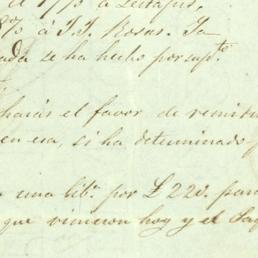 el 1770 á
8% á J. J. Rosas. Ya
ada se ha hecho por supte
harás el favor de remitir
en esa, si ha determinado
una liba. por £ 220. para
que vinieron hoy y el